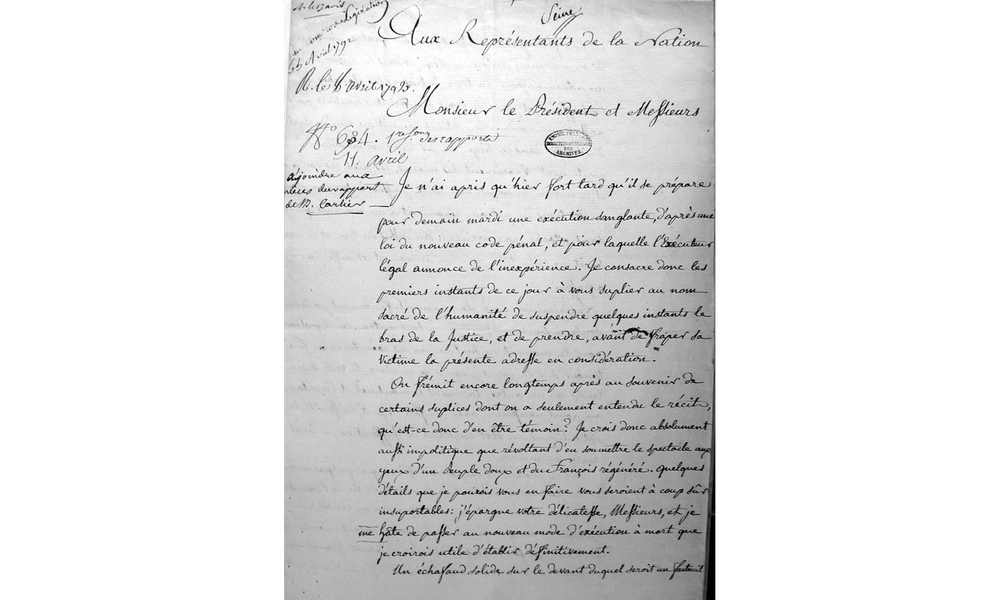 Seine
Aux Représentants de la Nation
Avril 1792
R. le avril 1792.
Monsieur le Président et Messieurs
N.º 634.
11. avril
ARCHIVES
Ajoindre aux
pieces du rapport
de M. Carlier
Je n'ai apris qu'hier fort tard qu'il se prépare
pour demain mardi une exécution sanglante, d'après une
loi du nouveau code pénal, et pour laquelle l'Exécuteur
légal annonce de l'inexpérience. Je consacre donc les
premiers instants de ce jour à vous suplier au nom
sacré de l'humanité de suspendre quelques instants le
bras de la Justice, et de prendre, avant de fraper sa
victime la présente adresse en considération.
On frémit encore longtemps après au souvenir de
certains suplices dont on a seulement entendu le récit,
qu'est-ce donc d'en être témoin? Je crois donc absolument
aussi impolitique que révoltant d'en soumettre le spectacle aux
yeux d'un Peuple doux et du François régénéré. quelques
détails que je pourois vous en faire vous seroient à coup sûr
insuportables: j'épargne votre délicatesse, Messieurs, et je
me hâte de passer au nouveau mode d'exécution à mort que
je croirois utile d'établir définitivement.
Un échafaud solide sur le devant duquel seroit un fauteuil